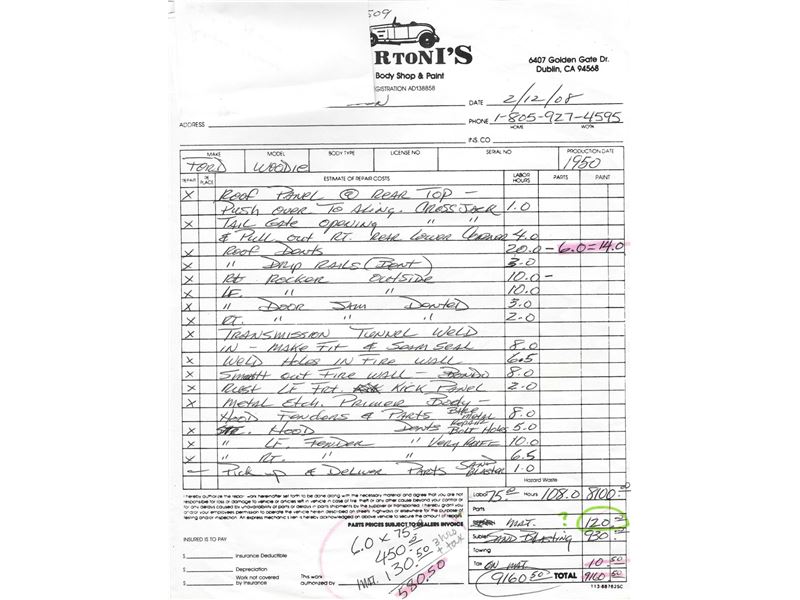 509
RTONI'S
Body Shop & Paint
GISTRATION AD138858
6407 Golden Gate Dr.
Dublin, CA 94568
DATE 2/12/08
ADDRESS
PHONE 1-805-927-4595
HOME WORK
INS CO
MAKE MODEL BODY TYPE LICENSE NO SERIAL NO PRODUCTION DATE
FORD WOODIE 1950
REPAIR REPLACE ESTIMATE OF REPAIR COSTS LABOR HOURS PARTS PAINT
X ROOF PANEL @ REAR TOP -
PUSH OVER TO ALING. CROSS JACK 1.0
X TAIL GATE OPENING " "
& PULL OUT RT. REAR LOWER CORNER 4.0
X ROOF DENTS 20.0 - 6.0 = 14.0
X " DRIP RAILS (BENT) 3.0
X RT ROCKER OUTSIDE 10.0 -
X LF. " " 10.0
X " DOOR JAM DENTED 3.0
X RT. " " " 2.0
X TRANSMISSION TUNNEL WELD
IN - MAKE FIT & SEAM SEAL 8.0
X WELD HOLES IN FIRE WALL 6.5
X SMOOTH OUT FIRE WALL - BONDO 8.0
X RUST LF FRT. KICK PANEL 2.0
X METAL ETCH. PRIMER BODY -
HOOD FENDERS & PARTS BARE METAL 8.0
X HOOD DENTS REPAIR BOLT HOLES 5.0
X " LF. FENDER " VERY RUFF 10.0
X " RT. " " 6.5
- PICK UP & DELIVER PARTS SAND BLASTER 1.0
Hazard Waste
I hereby authorize the repair work hereinafter set forth to be done along with the necessary material and agree that you are not
responsible for loss or damage to vehicle or articles left in vehicle in case of fire, theft or any other cause beyond your control or
for any delays caused by unavailability of parts or delays in parts shipments by the supplier or transporter. I hereby grant you
or and your employees permission to operate the vehicle herein described on street, highways or elsewhere for the purpose of
testing and/or inspection. An express mechanic's lien is hereby acknowledged on above vehicle to secure the amount of repairs
PARTS PRICES SUBJECT TO DEALERS INVOICE
Labor 75.00 Hours 108.0 8100.00
Parts
MAT. ? 120.00
Sublet SAND BLASTING 930.00
Towing
Tax ON MAT. 10.50
9160.50 TOTAL 9160.50
113-887625C
INSURED IS TO PAY
$ Insurance Deductible
$ Depreciation
$ Work not covered by insurance
This work authorized by
6.0 x 75.00
450.00
MAT. 130.50
580.50